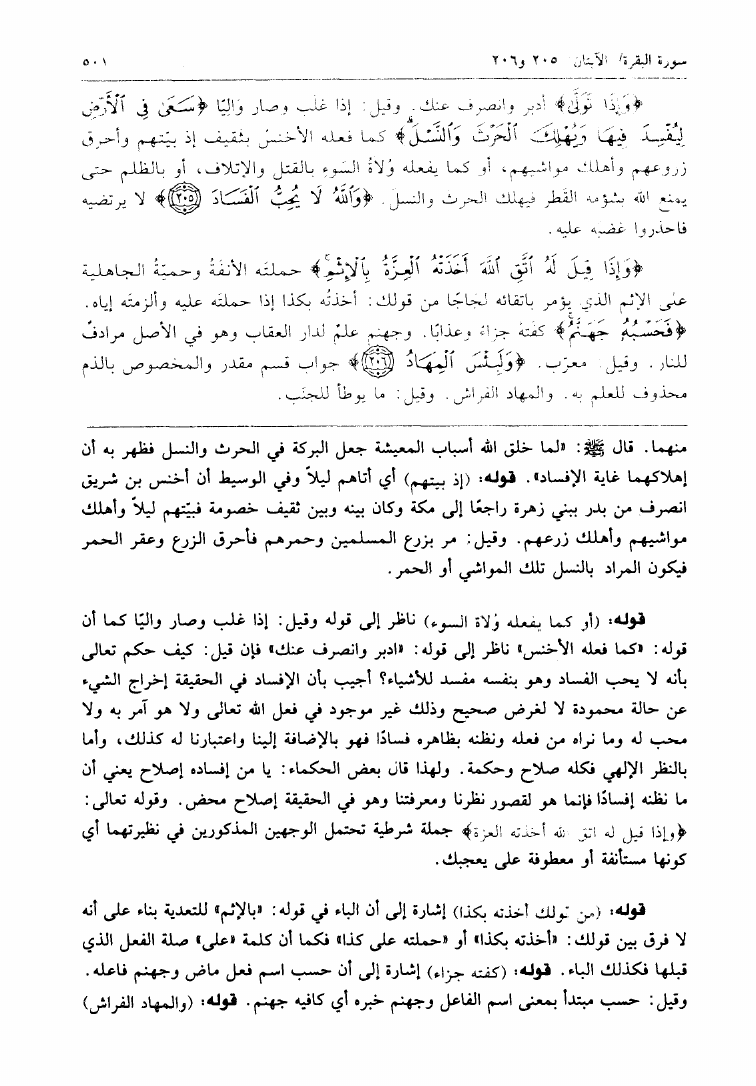 سورة البقرة/ الآيتان: ٢٠٥ و٢٠٦
٥٠١
﴿وَإِذَا تَوَلَّىٰ﴾ أدبر وانصرف عنك. وقيل: إذا غلب وصار واليًا ﴿سَعَىٰ فِي ٱلْأَرْضِ
لِيُفْسِدَ فِيهَا وَيُهْلِكَ ٱلْحَرْثَ وَٱلنَّسْلَ﴾ كما فعله الأخنسُ بثقيف إذ بيّتهم وأحرق
زروعهم وأهلك مواشيهم، أو كما يفعله وُلاةُ السّوءِ بالقتل والإتلاف، أو بالظلم حتى
يمنع الله بشؤمه القَطر فيهلك الحرث والنسل. ﴿وَٱللَّهُ لَا يُحِبُّ ٱلْفَسَادَ ﴿٢٠٥﴾﴾ لا يرتضيه
فاحذروا غضبه عليه.
﴿وَإِذَا قِيلَ لَهُ ٱتَّقِ ٱللَّهَ أَخَذَتْهُ ٱلْعِزَّةُ بِٱلْإِثْمِ﴾ حملته الأنفةُ وحميّةُ الجاهلية
على الإثم الذي يؤمر باتقائه لجاجًا من قولك: أخذتُه بكذا إذا حملتَه عليه وألزمتَه إياه.
﴿فَحَسْبُهُۥ جَهَنَّمُ﴾ كفتهُ جزاءً وعذابًا. وجهنم علمٌ لدار العقاب وهو في الأصل مرادفٌ
للنار. وقيل: معرّب. ﴿وَلَبِئْسَ ٱلْمِهَادُ ﴿٢٠٦﴾﴾ جواب قسم مقدر والمخصوص بالذم
محذوف للعلم به. والمهاد الفراش. وقيل: ما يوطأ للجنب.
منهما. قال ﷺ: «لما خلق الله أسباب المعيشة جعل البركة في الحرث والنسل فظهر به أن
إهلاكهما غاية الإفساد». قوله: (إذ بيتهم) أي أتاهم ليلاً وفي الوسيط أن أخنس بن شريق
انصرف من بدر ببني زهرة راجعًا إلى مكة وكان بينه وبين ثقيف خصومة فبيّتهم ليلاً وأهلك
مواشيهم وأهلك زرعهم. وقيل: مر بزرع المسلمين وحمرهم فأحرق الزرع وعقر الحمر
فيكون المراد بالنسل تلك المواشي أو الحمر.
قوله: (أو كما يفعله وُلاة السوء) ناظر إلى قوله وقيل: إذا غلب وصار واليًا كما أن
قوله: «كما فعله الأخنس» ناظر إلى قوله: «ادبر وانصرف عنك» فإن قيل: كيف حكم تعالى
بأنه لا يحب الفساد وهو بنفسه مفسد للأشياء؟ أجيب بأن الإفساد في الحقيقة إخراج الشيء
عن حالة محمودة لا لغرض صحيح وذلك غير موجود في فعل الله تعالى ولا هو آمر به ولا
محب له وما نراه من فعله ونظنه بظاهره فسادًا فهو بالإضافة إلينا واعتبارنا له كذلك، وأما
بالنظر الإلهي فكله صلاح وحكمة. ولهذا قال بعض الحكماء: يا من إفساده إصلاح يعني أن
ما نظنه إفسادًا فإنما هو لقصور نظرنا ومعرفتنا وهو في الحقيقة إصلاح محض. وقوله تعالى:
﴿وإذا قيل له اتق الله أخذته العزة﴾ جملة شرطية تحتمل الوجهين المذكورين في نظيرتهما أي
كونها مستأنفة أو معطوفة على يعجبك.
قوله: (من قولك أخذته بكذا) إشارة إلى أن الباء في قوله: «بالإثم» للتعدية بناء على أنه
لا فرق بين قولك: «أخذته بكذا» أو «حملته على كذا» فكما أن كلمة «على» صلة الفعل الذي
قبلها فكذلك الباء. قوله: (كفته جزاء) إشارة إلى أن حسب اسم فعل ماض وجهنم فاعله.
وقيل: حسب مبتدأ بمعنى اسم الفاعل وجهنم خبره أي كافيه جهنم. قوله: (والمهاد الفراش)